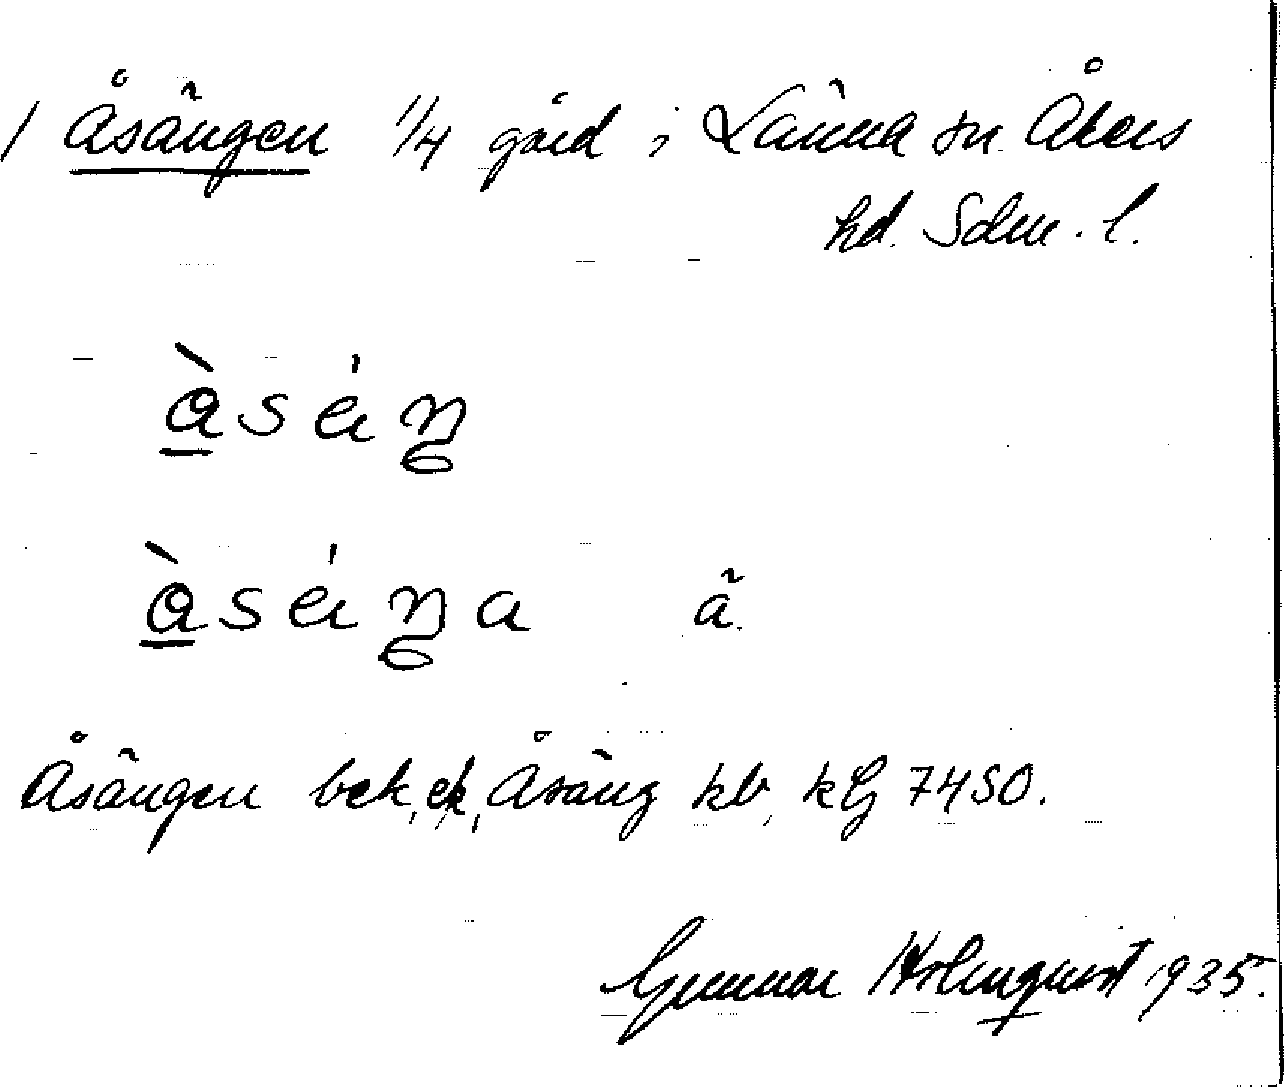 1 Åsängen 1/4 gård i Länna sn Åkers
hd. Sdm. l.
å̀sä́ŋ
å̀sä́ŋa ä̃.
Åsängen bek, ek, Åsäng kb, kG 7450.
Gunnar Holmquist 1935.